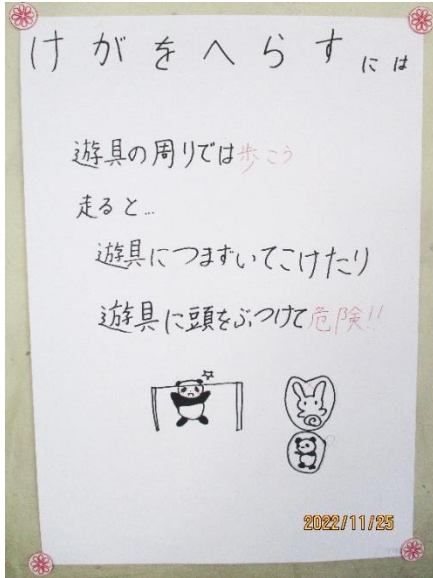 けがをへらすには
遊具の周りでは歩こう
走ると…
遊具につまずいてこけたり
遊具に頭をぶつけて危険!!
2022/11/25